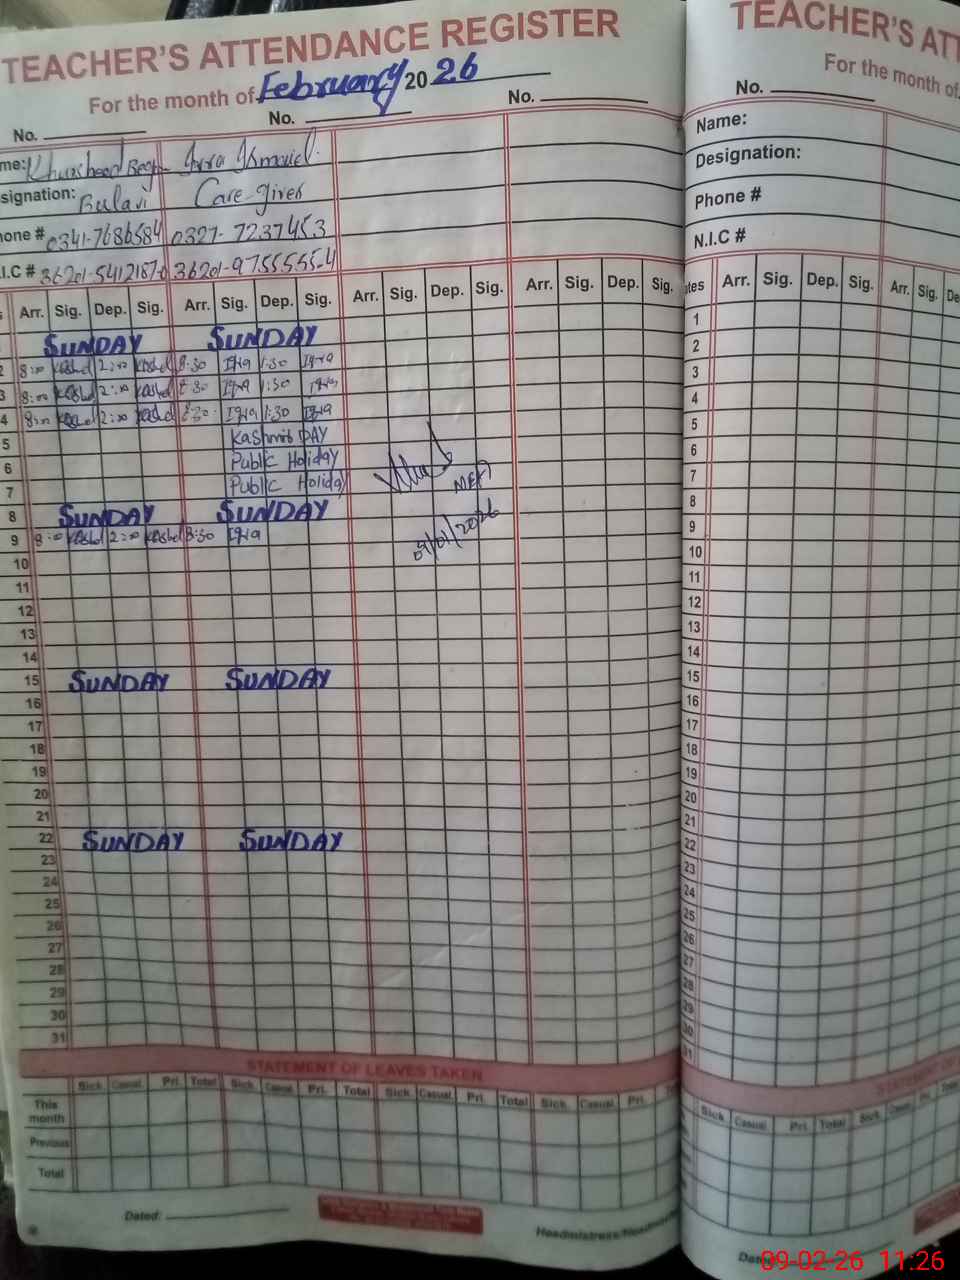 TEACHER'S ATTENDANCE REGISTER
For the month of February 20 26
No. No. No.
me: Khursheed Begum Iqra Ismaiel.
signation: Bulavi Care-giver
hone # 0341-7686584 0327-7237453
.I.C # 36201-5412167-0 36201-9755555-4
Arr. Sig. Dep. Sig. Arr. Sig. Dep. Sig. Arr. Sig. Dep. Sig. Arr. Sig. Dep. Sig.
SUNDAY SUNDAY
2 8:00 2:00 8:30 Iqra 1:30 Iqra
3 8:00 2:00 8:30 Iqra 1:30 Iqra
4 8:00 2:00 8:30 Iqra 1:30 Iqra
5 Kashmir DAY
6 Public Holiday
7 Public Holiday
8 SUNDAY SUNDAY
9 8:00 2:00 8:30 Iqra
MEA
09/01/2026
10
11
12
13
14
15 SUNDAY SUNDAY
16
17
18
19
20
21
22 SUNDAY SUNDAY
23
24
25
26
27
28
29
30
31
STATEMENT OF LEAVES TAKEN
Sick Casual Pri. Total Sick Casual Pri. Total Sick Casual Pri. Total Sick Casual Pri.
This month
Previous
Total
Dated:
Headmistress/Headm
TEACHER'S ATT
For the month of
No.
Name:
Designation:
Phone #
N.I.C #
tes Arr. Sig. Dep. Sig. Arr. Sig. De
1
2
3
4
5
6
7
8
9
10
11
12
13
14
15
16
17
18
19
20
21
22
23
24
25
26
27
28
29
30
31
STATEMENT O
Sick Casual Pri. Total Sick Casual Pri. Total
Dated:
09-02-26 11:26